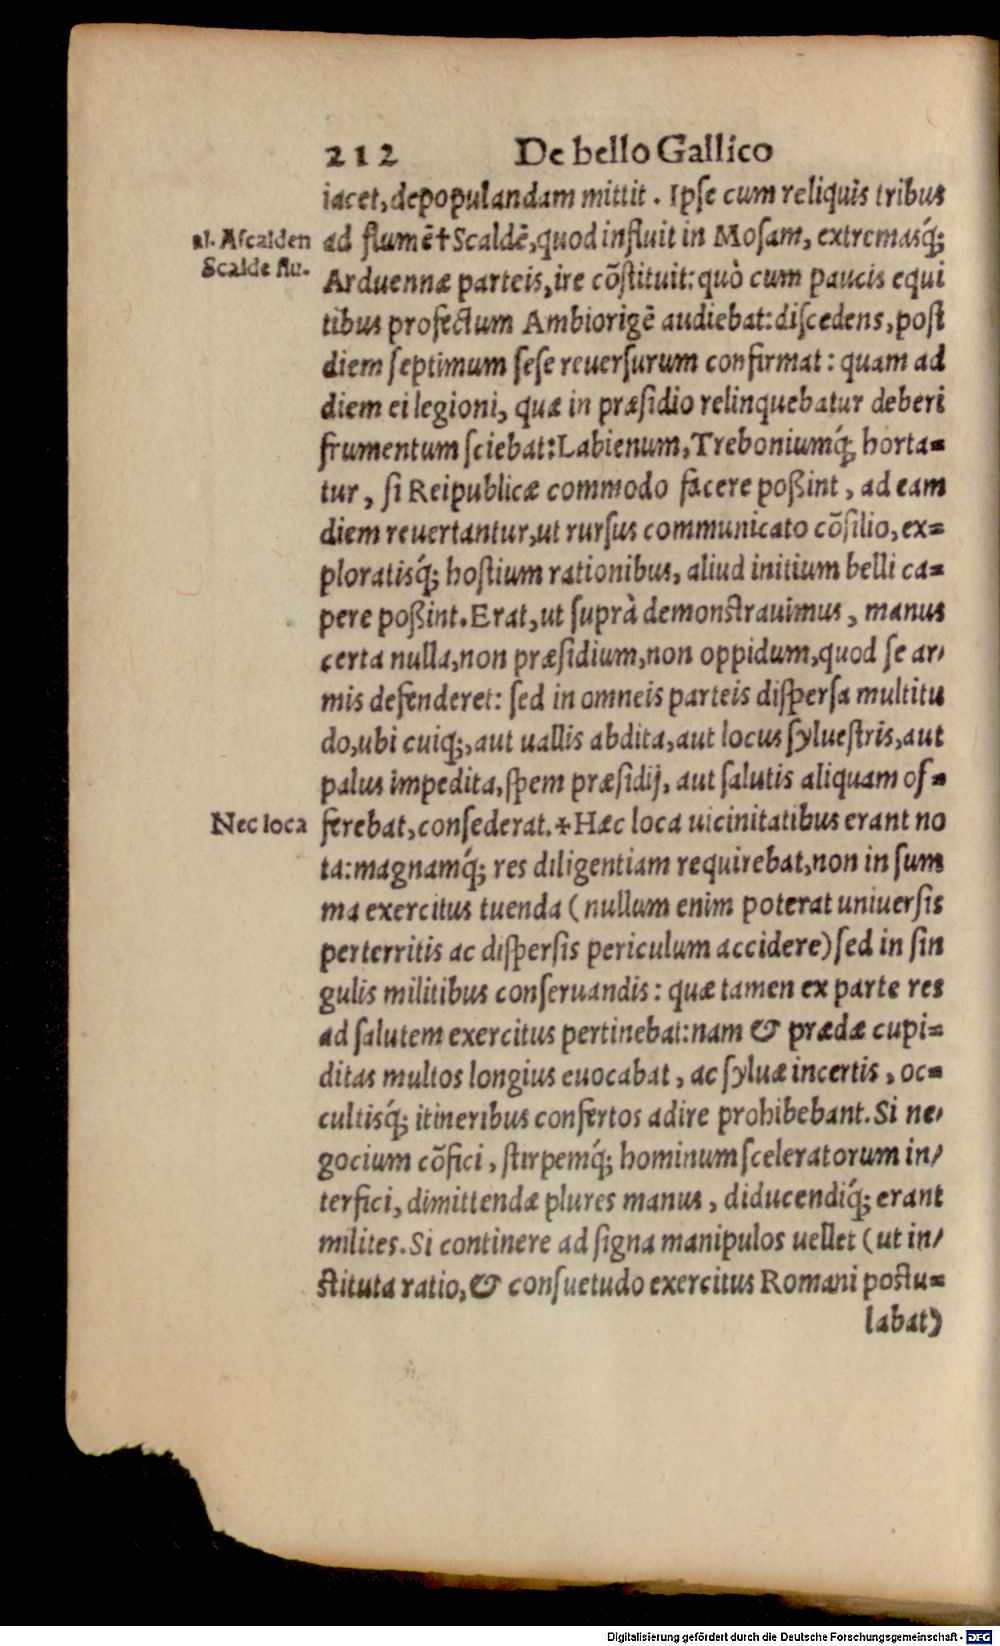 212 De bello Gallico
iacet, depopulandam mittit. Ipse cum reliquis tribus
al. Ascalden
Scalde flu.
ad flumē†Scaldē, quod influit in Mosam, extremasq́;
Arduennæ parteis, ire cōstituit: quò cum paucis equi
tibus profectum Ambiorigē audiebat: discedens, post
diem septimum sese reuersurum confirmat: quam ad
diem ei legioni, quæ in præsidio relinquebatur deberi
frumentum sciebat: Labienum, Treboniumq́; horta=
tur, si Reipublicæ commodo facere poßint, ad eam
diem reuertantur, ut rursus communicato cōsilio, ex=
ploratisq́; hostium rationibus, aliud initium belli ca=
pere poßint. Erat, ut suprà demonstrauimus, manus
certa nulla, non præsidium, non oppidum, quod se ar/
mis defenderet: sed in omneis parteis dispersa multitu
do, ubi cuiq;, aut uallis abdita, aut locus syluestris, aut
palus impedita, spem præsidij, aut salutis aliquam of=
Nec loca
ferebat, consederat.✠Hæc loca uicinitatibus erant no
ta: magnamq́; res diligentiam requirebat, non in sum
ma exercitus tuenda (nullum enim poterat uniuersis
perterritis ac dispersis periculum accidere) sed in sin
gulis militibus conseruandis: quæ tamen ex parte res
ad salutem exercitus pertinebat: nam & prædæ cupi=
ditas multos longius euocabat, ac syluæ incertis, oc=
cultisq́; itineribus confertos adire prohibebant. Si ne/
gocium cōfici, stirpemq́; hominum sceleratorum in/
terfici, dimittendæ plures manus, diducendiq́; erant
milites. Si continere ad signa manipulos uellet (ut in/
stituta ratio, & consuetudo exercitus Romani postu=
labat)
Digitalisierung gefördert durch die Deutsche Forschungsgemeinschaft - DFG